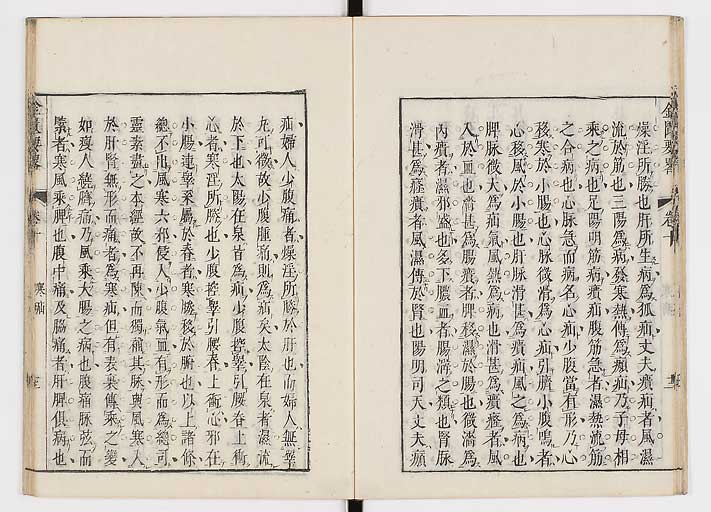 燥淫所勝也肝所生病為狐疝丈夫㿉疝者風濕
流於筋也三陽為病發寒熱傳為㿗疝乃子母相
乘之病也足陽明筋病㿉疝腹筋急者濕熱流筋
之合病也心脉急而病名心疝少腹當有形乃心
移寒於小腸也心脉微滑為心疝引臍小腹鳴者
心移風於小腸也肝脉滑甚為㿉疝風之為病也
脾脉微大為疝氣風熱為病也滑甚為㿉癃者風
入於血也濇甚為腸㿉者脾移濕於腸也微濇為
內㿉者濕邪盛也多下膿血者腸澼之類也腎脉
滑甚為癃㿉者風濕傳於腎也陽明司天丈夫㿗
疝婦人少腹痛者燥淫所勝於肝也而婦人無睾
尤可徵故少腹腫痛則為疝矣太陰在泉者濕流
於下也太陽在泉皆為疝少腹控睾引腰脊上衝
心者寒淫所勝也少腹控睾引腰脊上衝心邪在
小腸連睾系屬於脊者寒氣移於腑也以上諸條
總不出風寒六邪侵人少腹氣血有形而為總可
靈素盡之本經故不再陳而獨稱其脉與風寒入
於肝腎無形而痛者為寒疝但有表裏傳乘之變
如瘦人繞臍痛乃風乘大腸之病也腹痛脉弦而
緊者寒風乘脾也腹中痛及脇痛者肝脾俱病也
金匱要略
卷十
寒疝